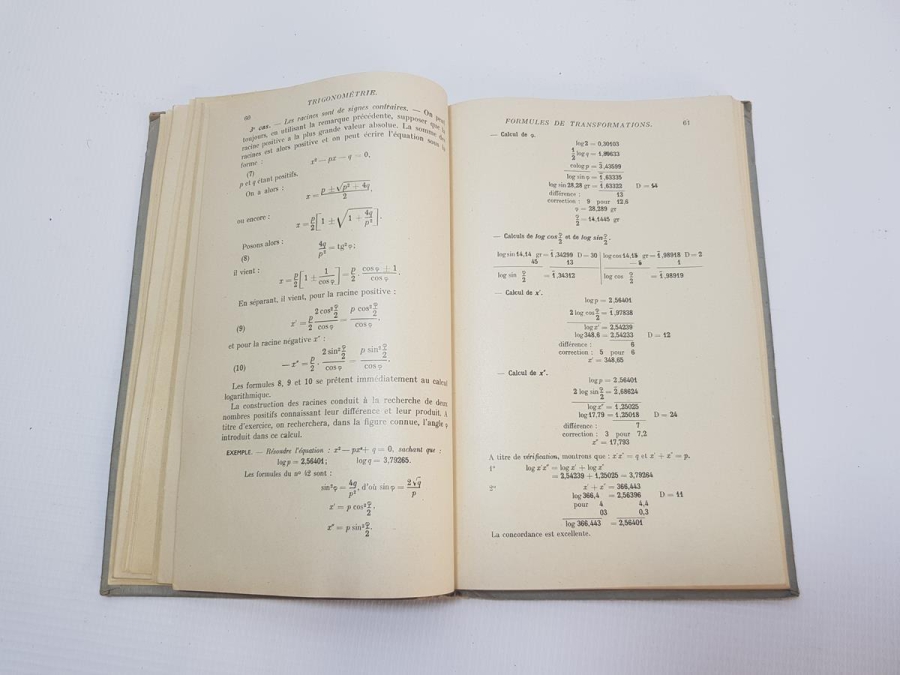 60
TRIGONOMÉTRIE.
3e cas. — Les racines sont de signes contraires. — On peut
toujours, en utilisant la remarque précédente, supposer que la
racine positive a la plus grande valeur absolue. La somme des
racines est alors positive et on peut écrire l'équation sous la
forme :
(7) x² — px — q = 0,
p et q étant positifs.
On a alors :
x = (p ± √(p² + 4q)) / 2,
ou encore :
x = p/2 [1 ± √(1 + 4q/p²)].
Posons alors :
(8) 4q/p² = tg² φ ;
il vient :
x = p/2 [1 ± 1/cos φ] = p/2 · (cos φ ± 1)/cos φ.
En séparant, il vient, pour la racine positive :
(9) x' = p/2 · (2 cos² φ/2)/cos φ = (p cos² φ/2)/cos φ.
et pour la racine négative x″ :
(10) — x″ = p/2 · (2 sin² φ/2)/cos φ = (p sin² φ/2)/cos φ.
Les formules 8, 9 et 10 se prêtent immédiatement au calcul
logarithmique.
La construction des racines conduit à la recherche de deux
nombres positifs connaissant leur différence et leur produit. A
titre d'exercice, on recherchera, dans la figure connue, l'angle φ
introduit dans ce calcul.
EXEMPLE. — Résoudre l'équation : x² — px + q = 0, sachant que :
log p = 2,56401; log q = 3,79265.
Les formules du nº 42 sont :
sin² φ = 4q/p², d'où sin φ = 2√q/p
x' = p cos² φ/2.
x″ = p sin² φ/2.
FORMULES DE TRANSFORMATIONS. 61
— Calcul de φ.
log 2 = 0,30103
1/2 log q = 1,89633
colog p = 3̄,43599
log sin φ = 1̄,63335
log sin 28,28 gr = 1̄,63322 D = 14
différence : 13
correction : 9 pour 12,6
φ = 28,289 gr
φ/2 = 14,1445 gr
— Calculs de log cos φ/2 et de log sin φ/2.
log sin 14,14 gr = 1̄,34299 D = 30 log cos 14,15 gr = 1̄,98918 D = 2
45 13 — 5 1
log sin φ/2 = 1̄,34312 log cos φ/2 = 1̄,98919
— Calcul de x'.
log p = 2,56401
2 log cos φ/2 = 1̄,97838
log x' = 2,54239
log 348,6 = 2,54233 D = 12
différence : 6
correction : 5 pour 6
x' = 348,65
— Calcul de x″.
log p = 2,56401
2 log sin φ/2 = 2̄,68624
log x″ = 1,25025
log 17,79 = 1,25018 D = 24
différence : 7
correction : 3 pour 7,2
x″ = 17,793
A titre de vérification, montrons que : x'x″ = q et x' + x″ = p.
1º log x'x″ = log x' + log x″
= 2,54239 + 1,25025 = 3,79264
2º x' + x″ = 366,443
log 366,4 = 2,56396 D = 11
pour 4 4,4
03 0,3
log 366,443 = 2,56401
La concordance est excellente.